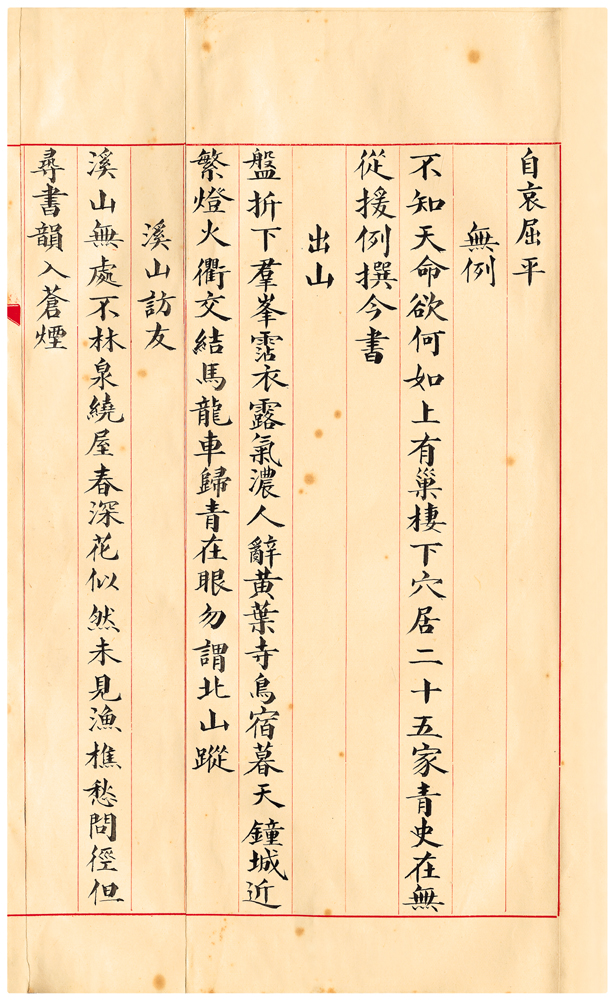 自哀屈平
無例
不知天命欲何如上有巢棲下穴居二十五家青史在無
從援例撰今書
出山
盤折下羣峯霑衣露氣濃人辭黃葉寺鳥宿暮天鐘城近
繁燈火衢交結馬龍車歸青在眼勿謂北山蹤
溪山訪友
溪山無處不林泉繞屋春深花似然未見漁樵愁問徑但
尋書韻入蒼煙